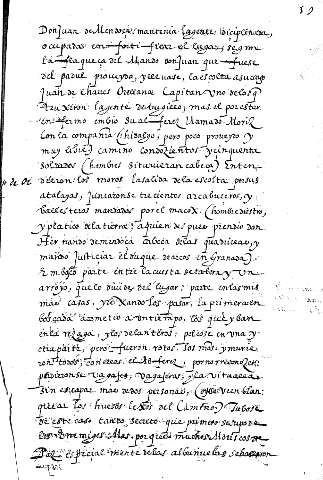 59
Don Juan de Mendoça mantenia la gente, i disciplinava,
ocupada en fortificar el lugar, segun
la flaqueça del. Mando don Juan que fuese
del padul proueydo, y lleuase, la escolta a su cargo
Juan de Chaues Orellana Capitan uno de los q
truxeron la gente de trugillo; mas el por estar
enfermo embio su alferez llamado Moriz
con la compañia (hidalgo, pero poco proueydo y
muy libre) camino con dozientos y cinquenta
soldados (hombres si tuuieran cabeça) Enten
dieron los moros la salida de la escolta por sus
atalayas, juntaronse trecientos arcabuceros, y
ballesteros mandados por el macox (hombre diestro,
y platico de la tierra) a quien despues prendio don
Hernando de mendoça cabeça de las quadrillas, y
mando justiciar el duque de arcos en Granada)
Emboscó parte entre la cuesta de talera y Un
arroyo, que lo diuide del lugar; parte en las mis
mas casas, y dexandolos pasar, la primera em
boscada acometio a Un tiempo, los que yban
en la reçaga, y los delanteros; pelease en una y
otra parte, pero fueron rotos los mas, y murie
ron todos, con ellos el alferez, por no reconocer;
perdieronse Vagajes, Vagajeros, y la vitualla
sin escapar mas de dos personas,
los huesos lexos del Camino) Tubose
de este caso, tanto, secreto que primero se supo de
los enemigos. Mas porque muchos Moriscos de
Paz especial mente de las albuñuelas